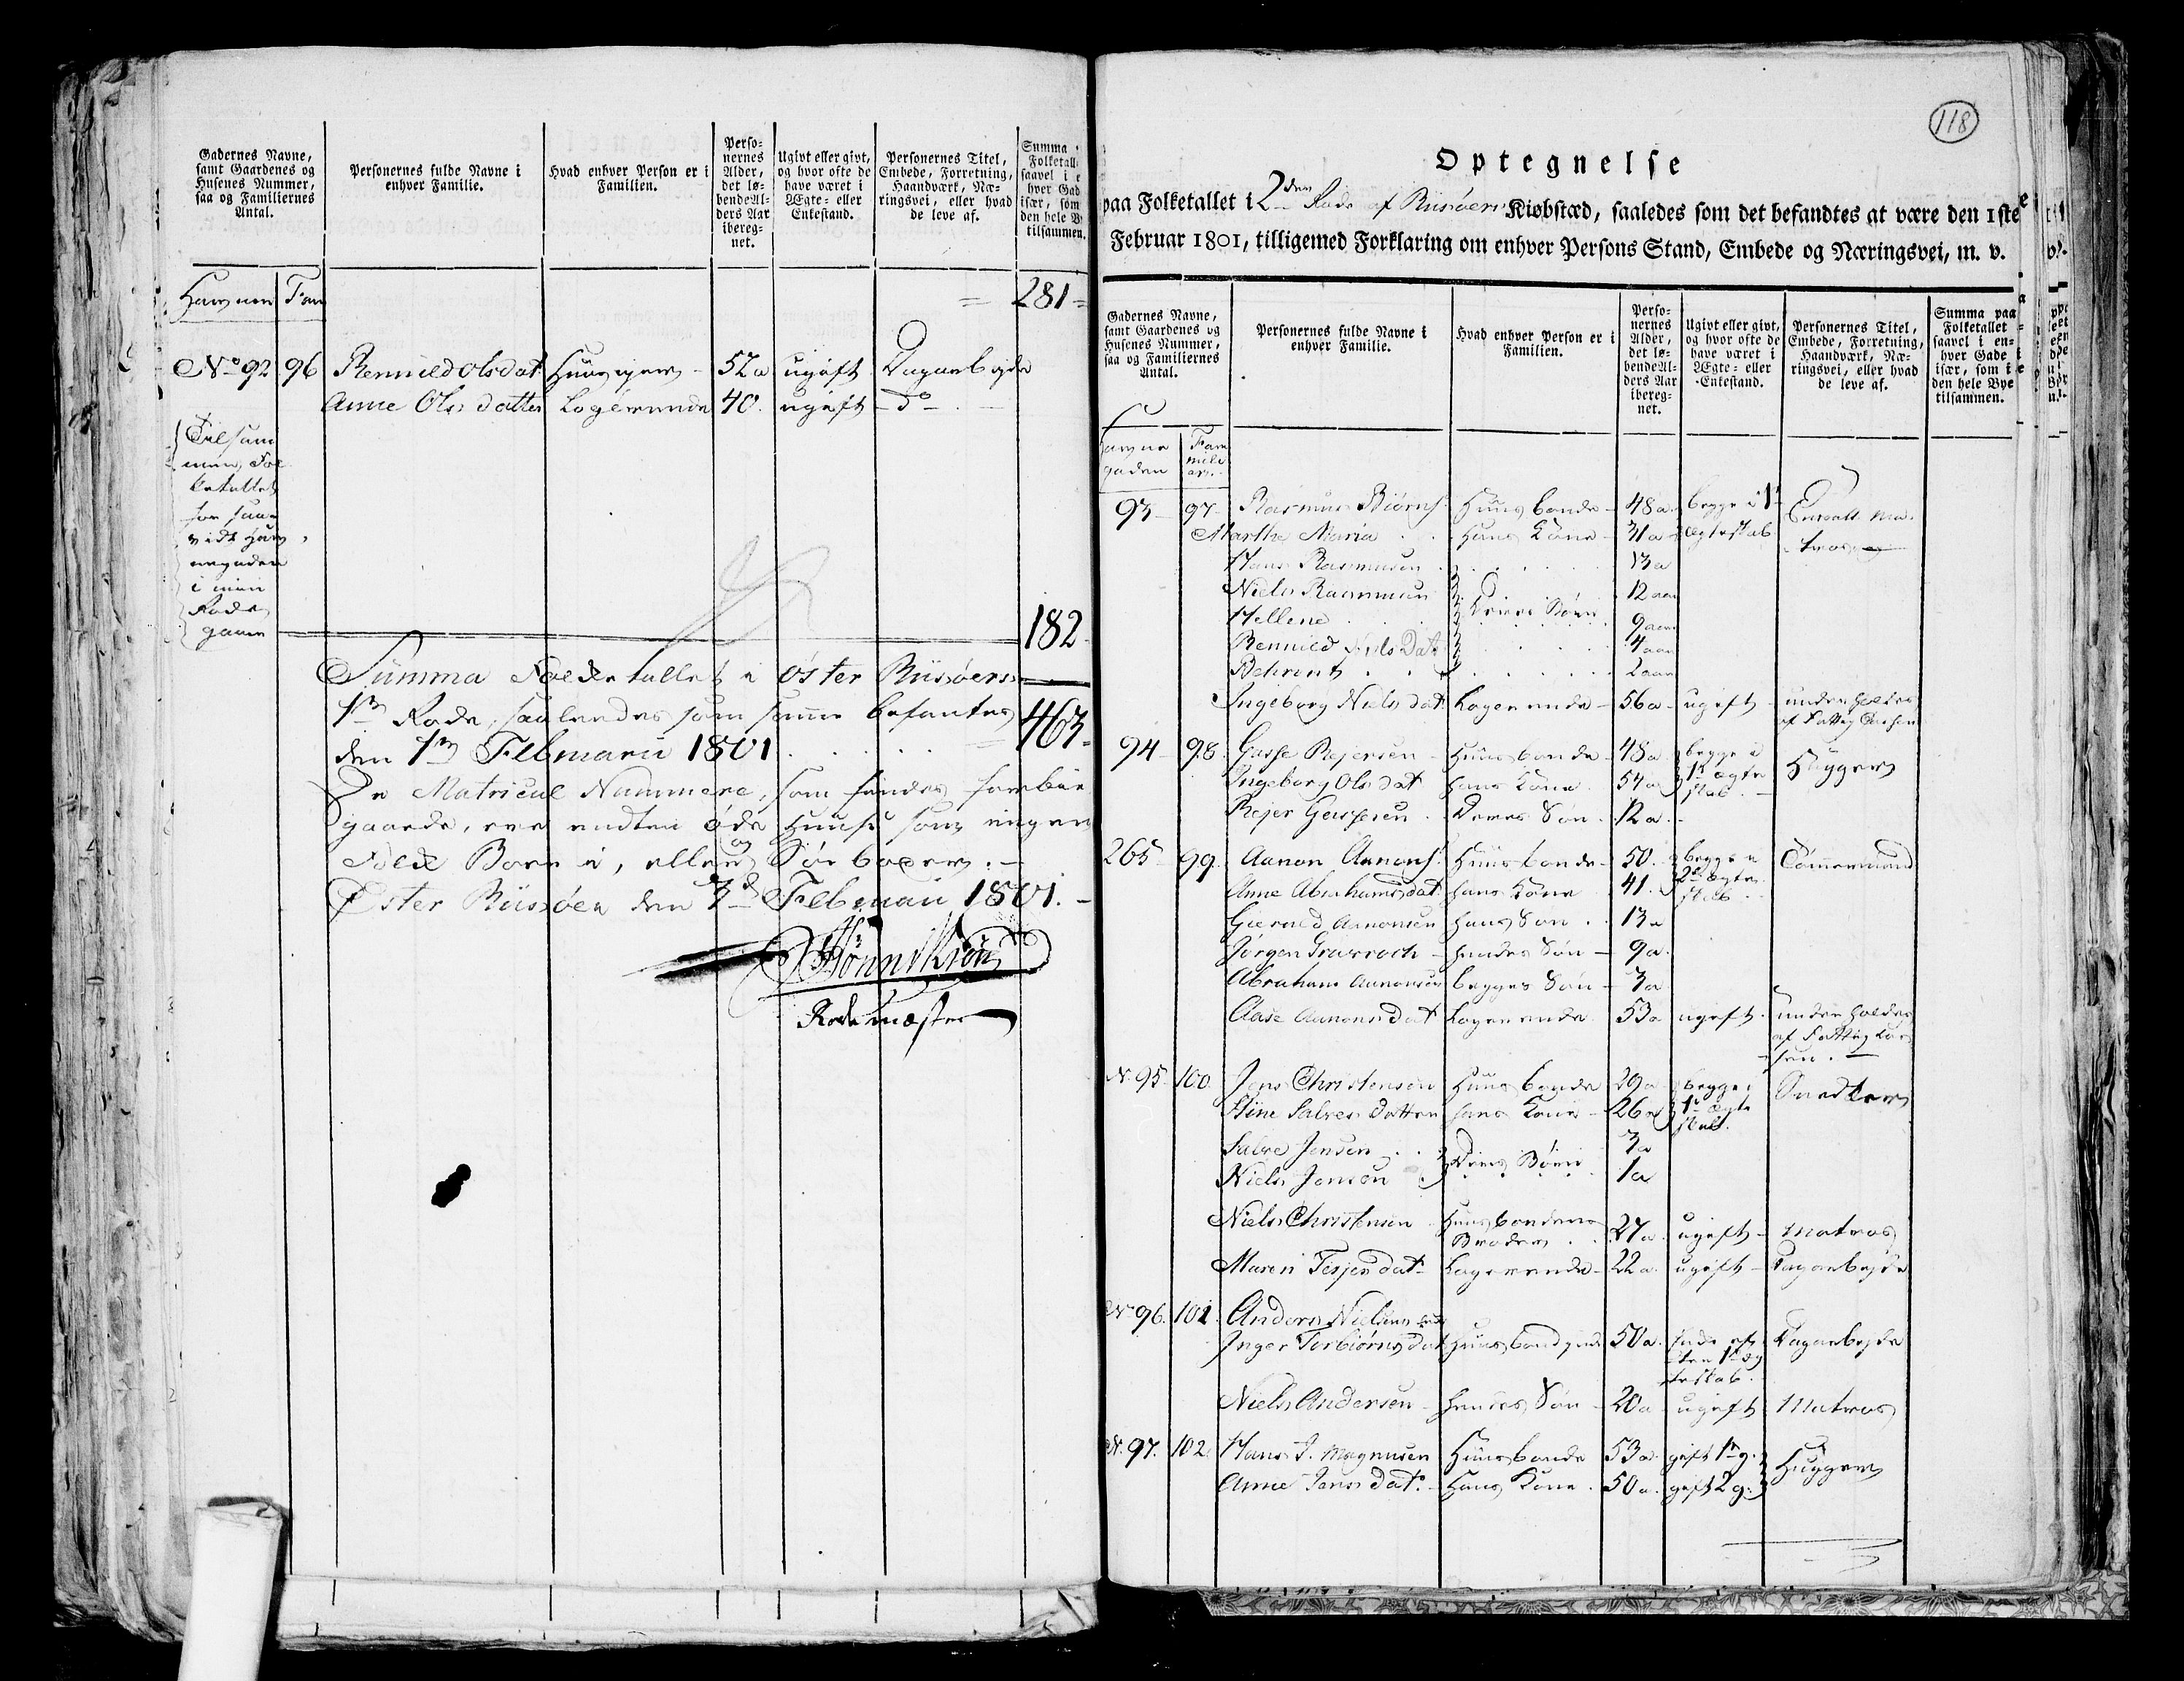 Gadernes Navne, samt Gaardenes og Husenes Nummer, saa og Familiernes Antal.
Personernes fulde Navne i enhver Familie.
Hvad enhver Person er i Familien.
Personernes Alder, det løbende Alders Aar iberegnet.
Ugivt eller givt, og hvor ofte de have været i Ægte- eller Enkestand.
Personernes Titel, Embede, Forretning, Haandværk, Næringsvei, eller hvad de leve af.
Summa
281
No 92 96 Rennild Olsdat 52 a ugift Dagarbejde
Anne Olsdatter Logerende 40 ugift do
Tilsam
men Fol
ketallet
for saa
vidt Hav
negaden
i min
Rode
182
Summa Folketallet i Øster Riisøers
1te Rode, saaledes som samme befantes
den 1te Februarii 1801 463
De Matricul Nummere, som findes forbie
gaaede, ere endten øde Huuse som ingen
Folk Boer i, eller og Søe boder.
Øster Riisøer den 3d Februari 1801.
Rodemæster
118
Optegnelse
paa Folketallet i 2den Rode af Riisøers Kiøbstæd, saaledes som det befandtes at være den 1ste
Februar 1801, tilligemed Forklaring om enhver Persons Stand, Embede og Næringsvei, m. v.
Gadernes Navne, samt Gaardenes og Husenes Nummer, saa og Familiernes Antal.
Personernes fulde Navne i enhver Familie.
Hvad enhver Person er i Familien.
Personernes Alder, det løbende Alders Aar iberegnet.
Ugivt eller givt, og hvor ofte de have været i Ægte- eller Enkestand.
Personernes Titel, Embede, Forretning, Haandværk, Næringsvei, eller hvad de leve af.
Summa paa Folketallet saavel i enhver Gade især, som i den hele Bye tilsammen.
Havne
gaden
Fam
milie
93 97 Rasmus Biørns. Huusbonde 48 a begge i 1t Enroll. Ma
Marthe Maria Hans Kone 31 a Ægteskab tros
Hans Rasmusen 13 a
Niels Rasmusen 12 aar
Hellene Deres Børn 9 aar
Rennild Niels Dat 4 aar
Behrent 2 aar
Ingeborg Niels dat Logerende 56 a ugift underholdes
af Fattig Cassen
94 98 Gasse Rejersen Huusbonde 48 a begge i Huggers
Ingeborg Ols dat hans Kone 54 a 1t Ægte
skab
Rejer Gassesen Deres Søn 12 a
265 99 Aanon Aanons. Huusbonde 50 begge i Tømmermand
Anne Abrahams dat hans Kone 41 2t Ægte
skab
Gieruld Aanonsen hans Søn 13 a
Jørgen Gravroch hendes Søn 9 a
Abraham Aanonsen begges Søn 3 a
Aase Aanons dat Logerende 53 a ugift underholdes
af Fattig Cas
sen
N. 95 100 Jens Christensen Huusbonde 29 a begge i Snedker
Stine Salves datter hans Kone 26 a 1t Ægte
skab
Salve Jensen Deres Børn 3 a
Niels Jensen 1 a
Niels Christensen Huusbondens
Broder 27 a ugift Matros
Maren Terjes dat Logerende 22 a ugift Dagarbejde
No 96 101 Anders Nielsens
Inger Torbiørns dat 50 a Dagarbejde
Niels Andersen hendes Søn 20 a ugift Matros
N. 97 102 Hans J. Magnusen Huusbonde 53 a gift 1te g. Huggers
Anne Jens dat Hans Kone 50 a gift 2 g.